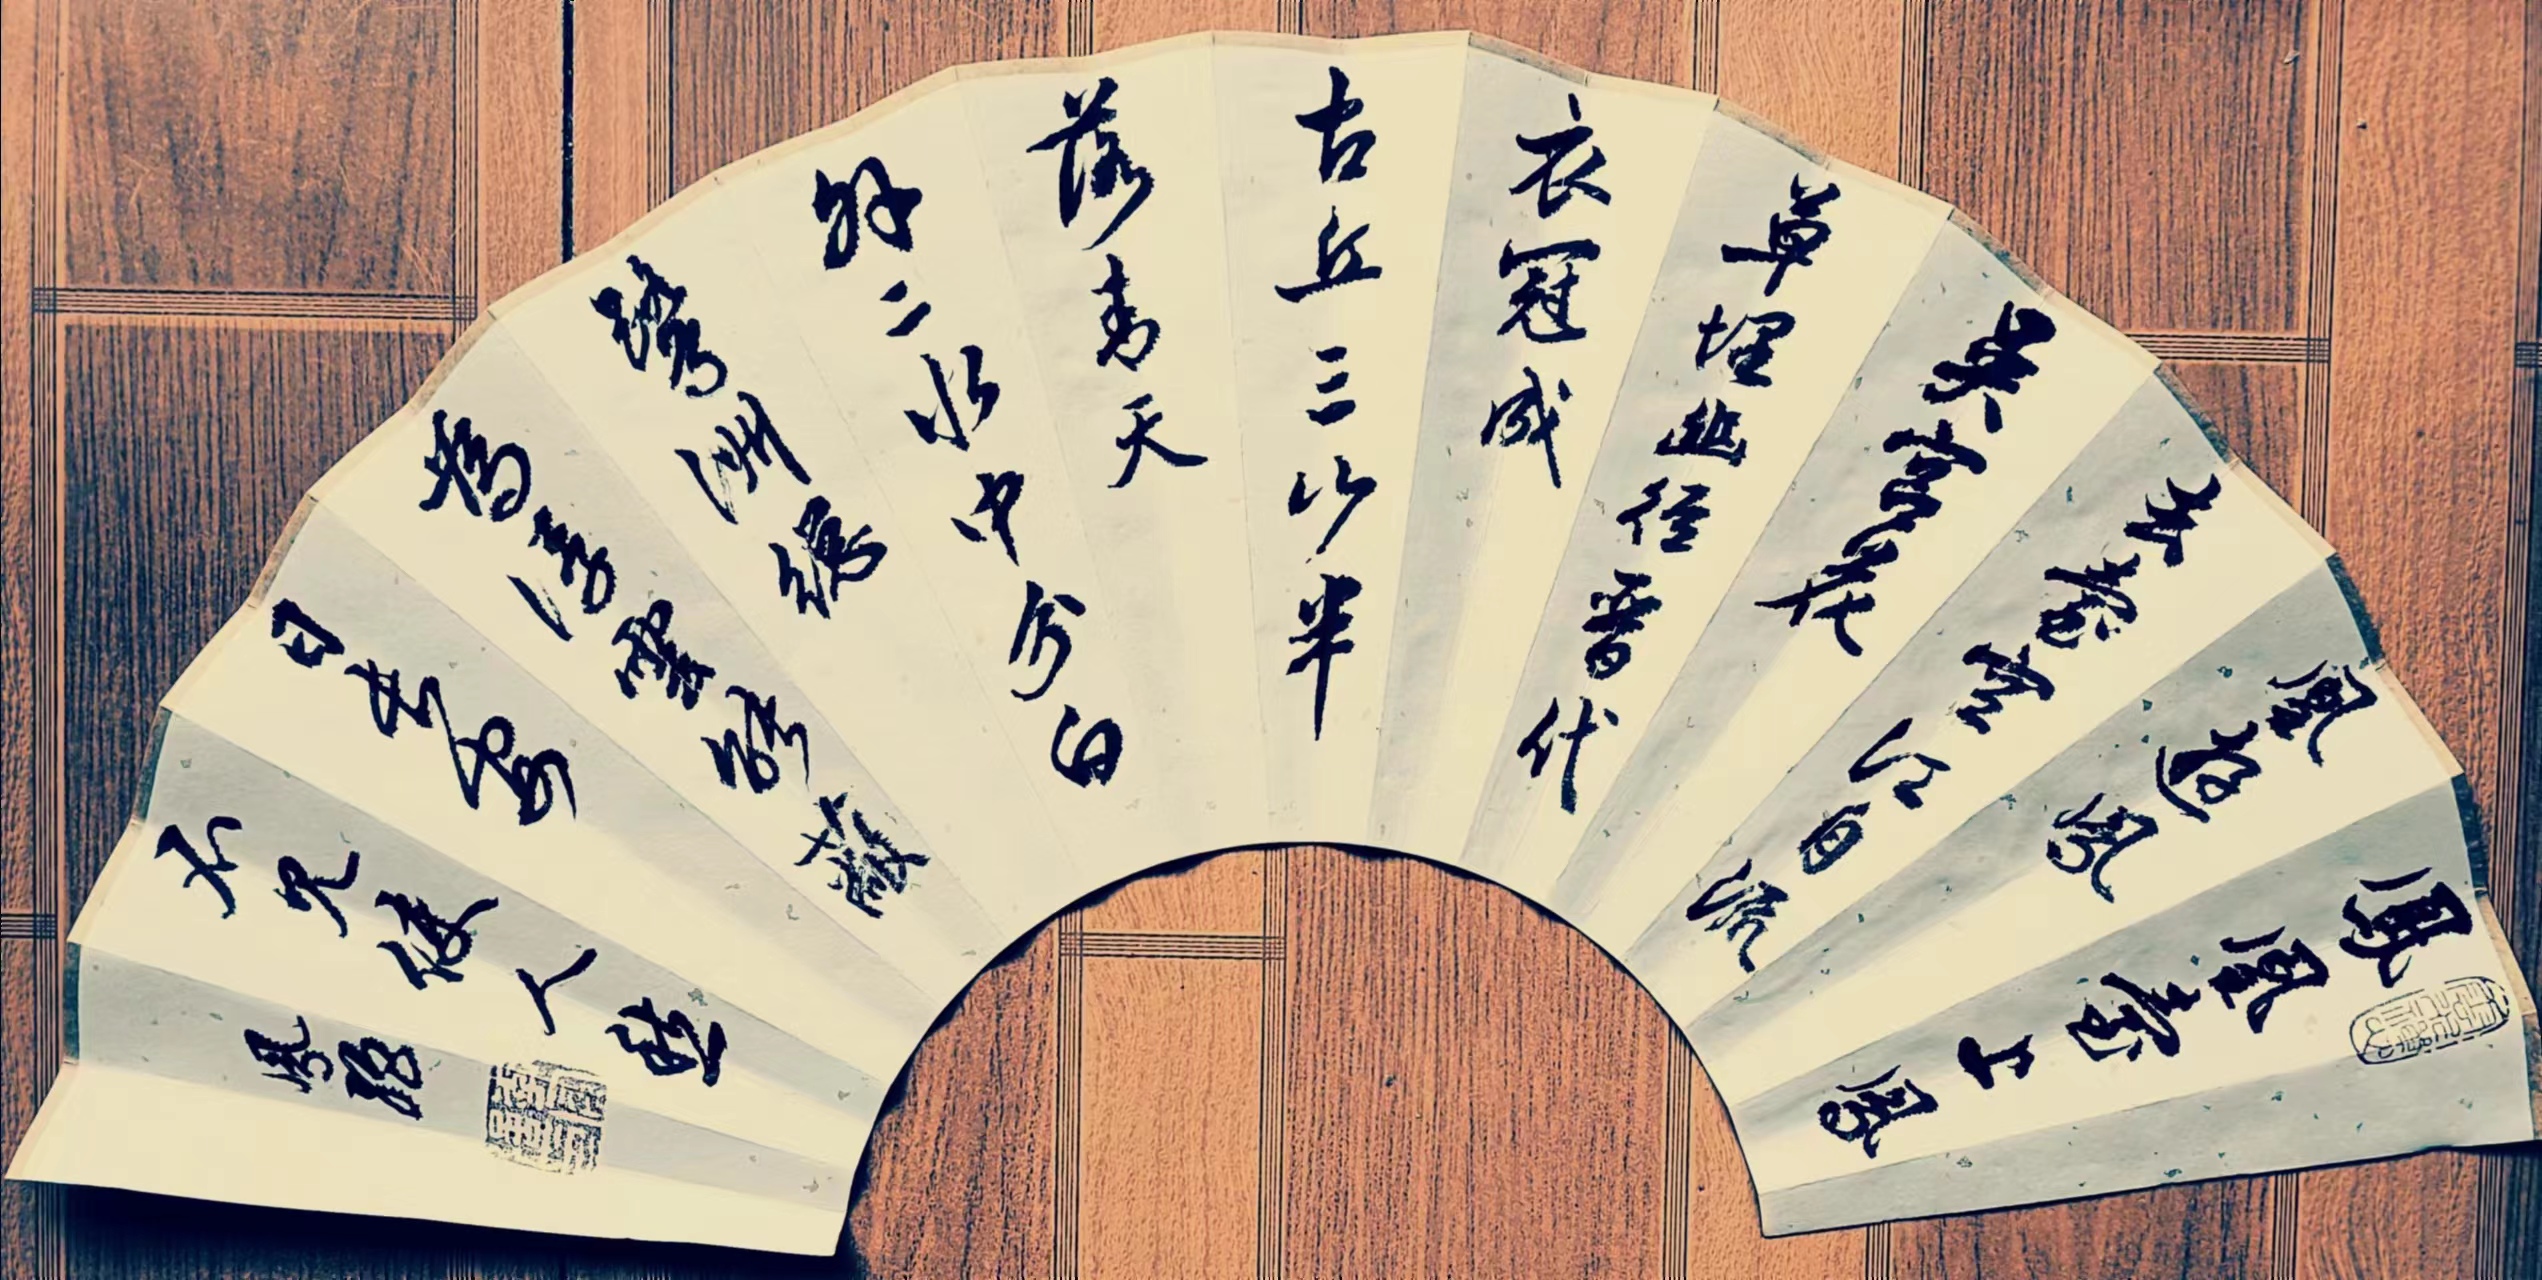 鳳凰臺上鳳
凰遊鳳
去臺空江自流
吳宮花
草埋幽徑晉代
衣冠成
古丘三山半
落青天
外二水中分白
鷺洲總
為浮雲能蔽
日長安
不見使人愁